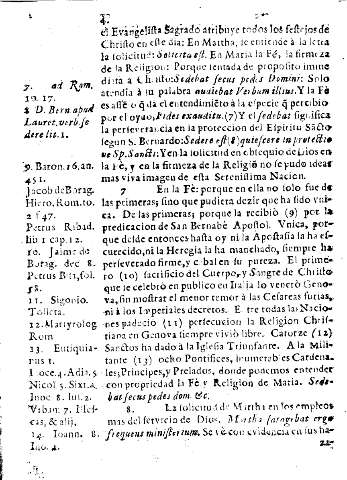 4.
el Evangelista Sagrado atribuye todos los festejos de
Christo en este dia: En Martha, se entiende à la letra
la solicitud: Solicita est. En Maria la fè, la firmeza
de la Religion: Porque sentada de proposito immediata
à Christo: Sedebat secus pedes Domini: Solo
atendia à su palabra audiebat Verbum illius. Y la Fè
es assê o q̃ da el entendimiẽto à la especie q̃ percibio
por el oydo, Fides ex auditu. (7) Y el sedebat significa
la perseverancia en la proteccion del Espiritu Sãcto
segun S. Bernardo: Sedere est (8) quiescere in protectione
Sp. Sancti: Y en la solicitud en obsequio de Dios en
la Fè, y en la firmeza de la Religiõ no se pudo idear
mas viva imagen de esta Serenissima Nacion.
7 En la Fè: porque en ella no solo fue de
las primeras; sino que pudiera dezir que ha sido vnica.
De las primeras; porque la recibiò (9) por la
predicacion de San Bernabè Apostol. Vnica, porque
desde entonces hasta oy ni la Apostasia la ha escurecido,
ni la Heregia la ha manchado, siempre ha
perseverado firme, y cabal en su pureza. El primero
(10) sacrificio del Cuerpo, y Sangre de Christo
que se celebrò en publico en Italia lo venerò Genova,
sin mostrar el menor temor à las Cesareas furias,
ni à los Imperiales decretos. Entre todas las Naciones
padeciò (11) persecucion la Religion Christiana
en Genova siempre viviò libre. Catorze (12)
Sanctos ha dado à la Iglesia Triunfante. A la Militante
(13) ocho Pontifices, inumerables Cardenales,
Principes, y Prelados, donde podemos entender
con propriedad la Fè y Religion de Maria. Sedebat
secus pedes dom. &c.
8. La solicitud de Martha en los empleos
mas del servicio de Dios. Martha satagebat erga
frequens ministerium. Se vè con evidencia en sus ha-
7. ad Rom.
10. 17.
8 D. Bern apud
Lauret. verb. sedere
lit. 1.
9. Baron. 16. an.
451.
Jacob de Barag.
Hiero. Rom. to.
2 f 47.
Petrus Ribad.
lib 1 cap. 12.
10. Jaime de
Barag. dec 8.
Petrus Bri, fol.
58.
11. Sigonio.
Tolieta.
12. Martyrolog
Rom
13. Eutiquianus
1.
Inoc. 4. Adri. 5
Nicol 5. Sixt. 4.
Inoc 8. Jul. 2.
Vrban. 7. Illescas,
& alij.
14. Ioann. 8.